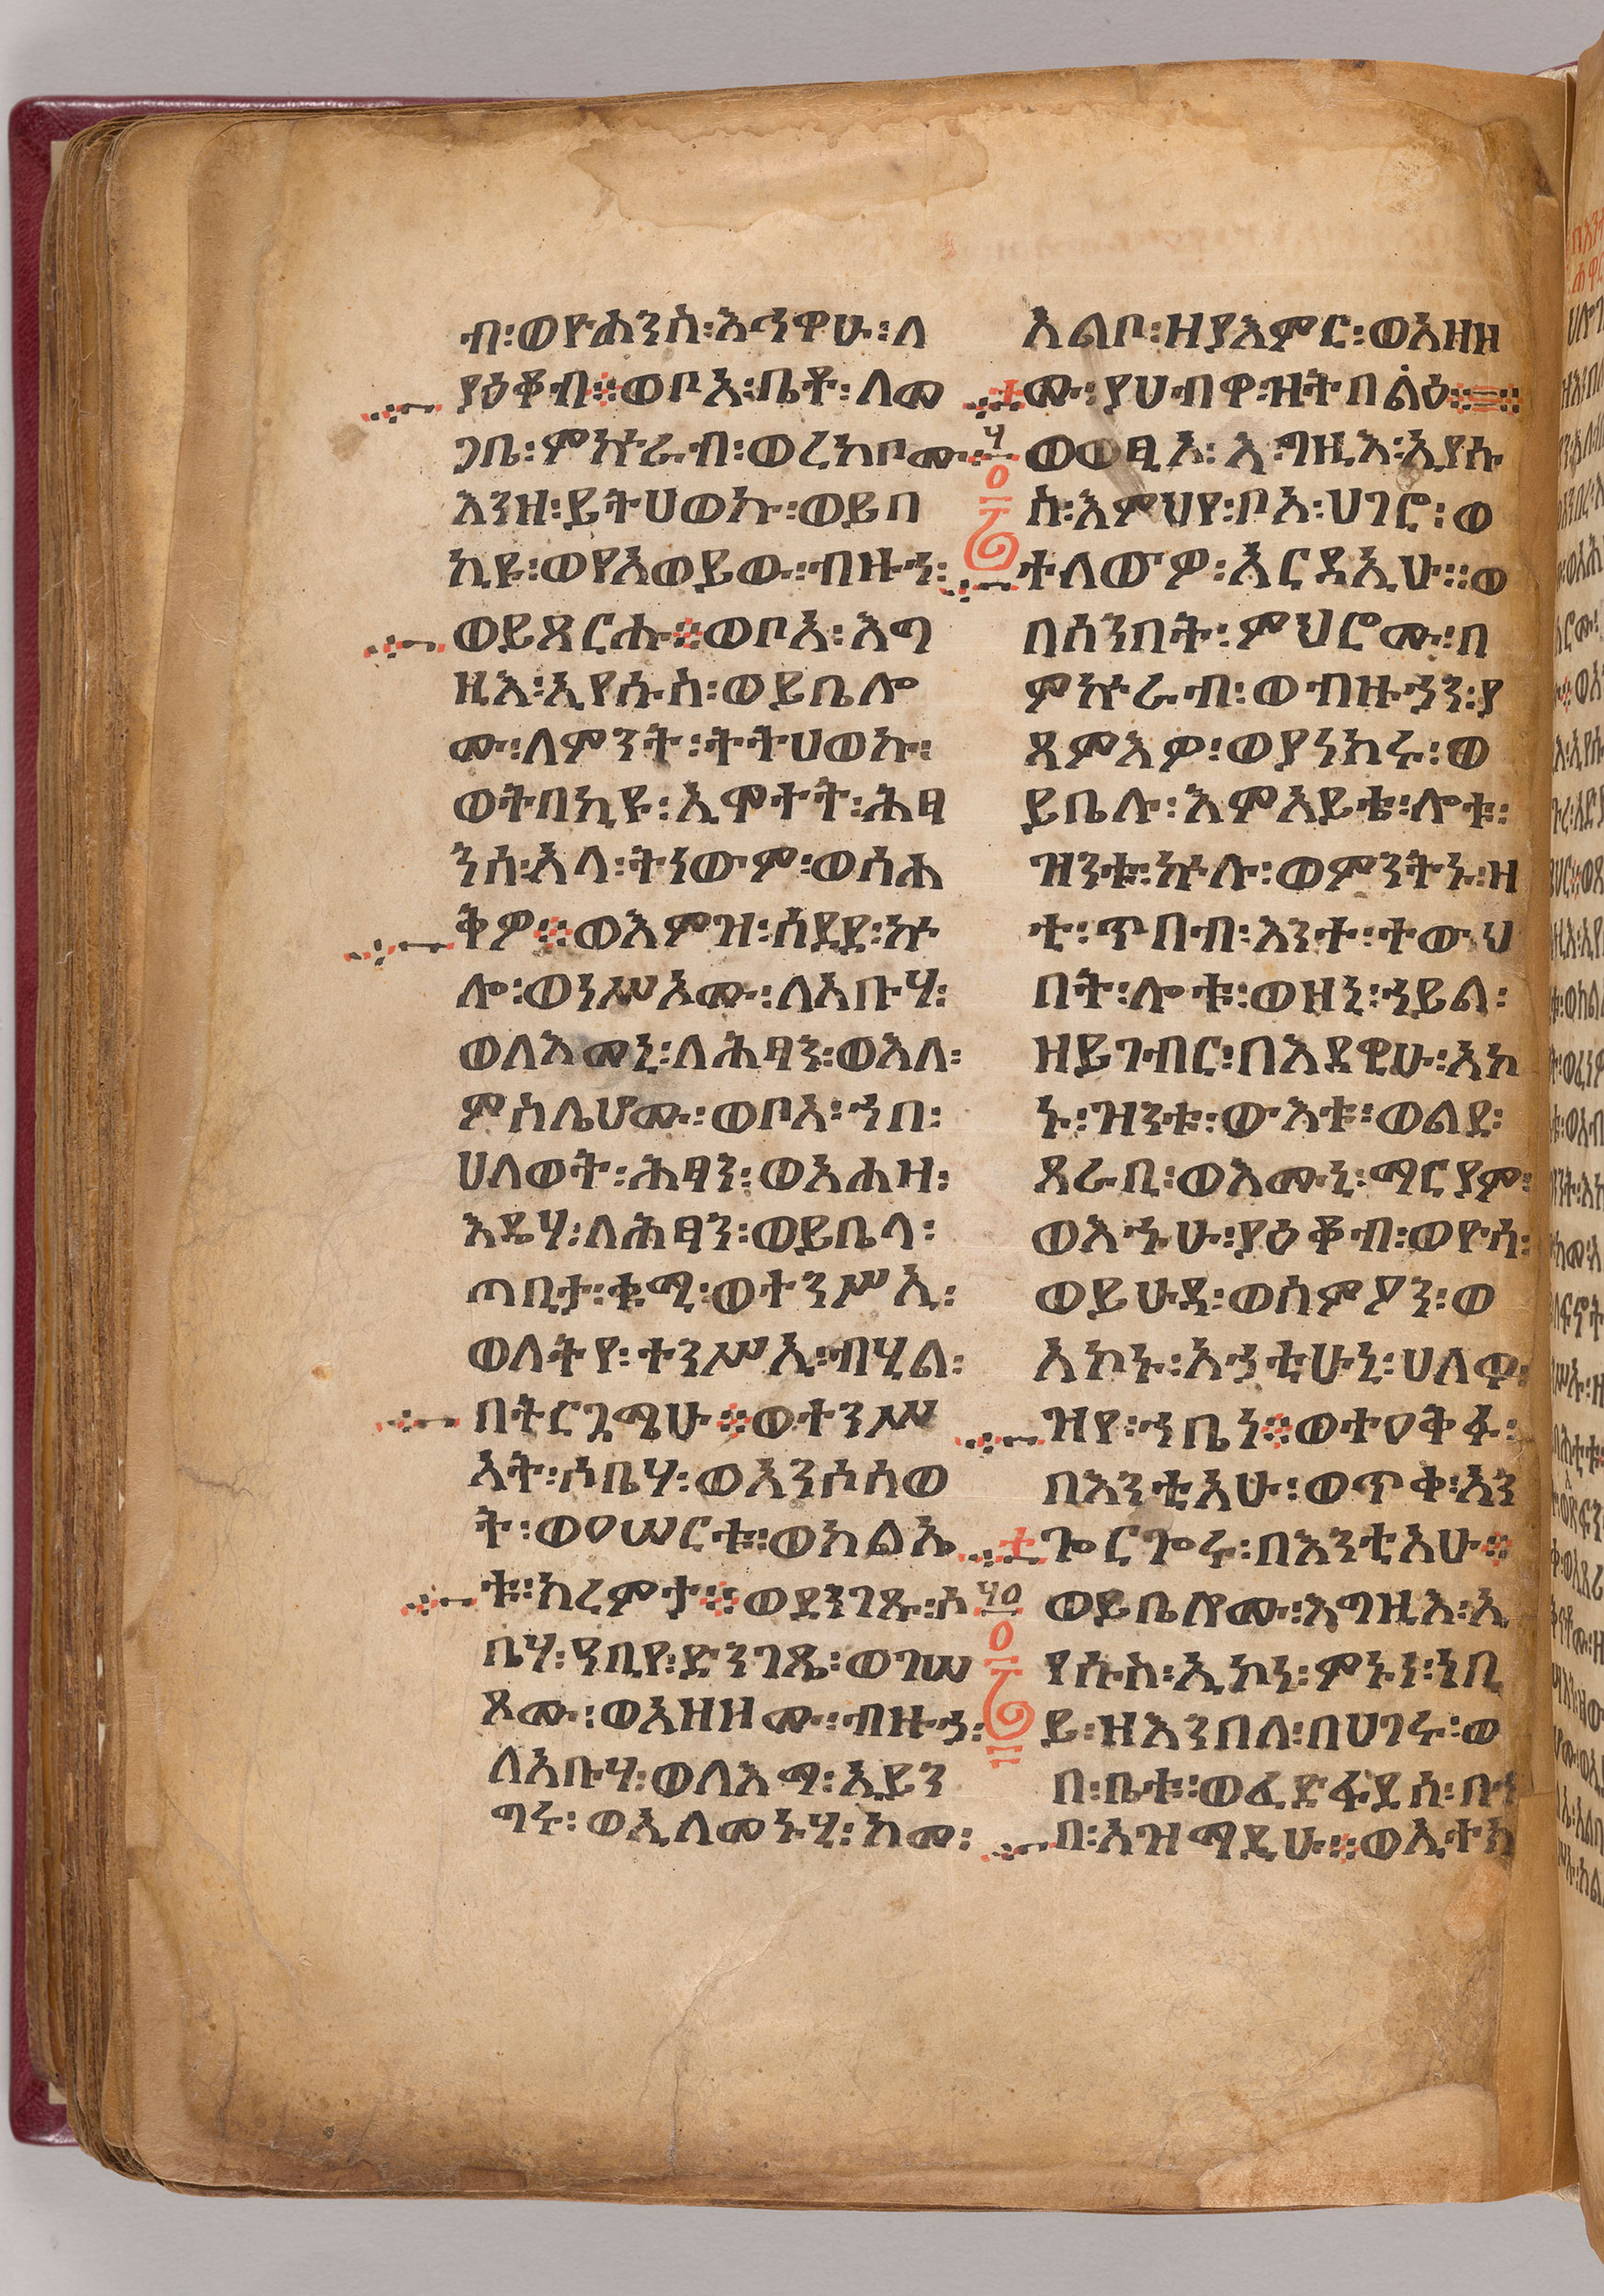 ብ፡ወዮሐንስ፡እኅዋሁ፡ለ
ያዕቆብ።ወቦአ፡ቤቶ፡ለመ
ጋቤ፡ምኵራብ፡ወረከቦሙ፡
እንዘ፡ይትሀወኩ፡ወይበ
ኪዩ፡ወየአወይው፡ብዙኀ፡
ወይጸርሑ።ወቦአ፡እግ
ዚእ፡ኢየሱስ፡ወይቤሎ
ሙ፡ለምንት፡ትትሀወኩ፡
ወትበኪዩ፡ኢሞተት፡ሕፃ
ንሰ፡አላ፡ትነውም፡ወሰሐ
ቅዎ።ወእምዝ፡ሰደደ፡ኵ
ሎ፡ወነሥኦሙ፡ለአቡሃ፡
ወለእመኒ፡ለሕፃን፡ወእለ፡
ምስሌሆሙ፡ወቦአ፡ኀበ፡
ሀለወት፡ሕፃን፡ወአሐዛ፡
እዴሃ፡ለሕፃን፡ወይቤላ፡
ጣቢታ፡ቁሚ፡ወተንሥኢ፡
ወለትየ፡ተንሥኢ፡ብሂል፡
በትርጓሜሁ።ወተንሥ
አት፡ሶቤሃ፡ወአንሶሰወ
ት፡ወዐሠርቱ፡ወክልኤ
ቱ፡ክረምታ።ወደንገጹ፡ሶ
ቤሃ፡ዓቢየ፡ድንጋጼ፡ወገሠ
ጾሙ፡ወአዘዘሙ፡ብዙኃ፡
ለአቡሃ፡ወለእማ፡ኢይን
ግሩ፡ወኢለመኑሂ፡ከመ፡
አልቦ፡ዘያእምር፡ወአዘዘ
ሙ፡ያሀብዋ፡ዝትበልዕ።
ወወፂኦ፡እግዚእ፡ኢየሱ
ስ፡እምህየ፡ቦአ፡ሀገሮ፡ወ
ተለውዎ፡አርዳኢሁ።ወ
በሰንበት፡ምህሮሙ፡በ
ምኵራብ፡ወብዙኃን፡ያ
ጸምእዎ፡ወያነክሩ፡ወ
ይቤሉ፡እምአይቴ፡ሎቱ፡
ዝንቱ፡ኵሉ፡ወምንትኑ፡ዛ
ቲ፡ጥበብ፡እንተ፡ተውህ
በት፡ሎቱ፡ወዘኒ፡ኀይል፡
ዘይገብር፡በእደዊሁ፡አኮ
ኑ፡ዝንቱ፡ውእቱ፡ወልደ፡
ጸራቢ፡ወእሙኒ፡ማርያም፡
ወእኁሁ፡ያዕቆብ፡ወዮሳ፡
ወይሁዳ፡ወስምዖን፡ወ
አኮኑ፡አኃቲሁኒ፡ሀለዋ፡
ዝየ፡ኀቤነ።ወተዐቅፉ፡
በእንቲአሁ፡ወጥቀ፡አን
ጐርጐሩ፡በእንቲአሁ።
ወይቤሎሙ፡እግዚእ፡ኢ
የሱስ፡ኢኮነ፡ምኑነ፡ነቢ
ይ፡ዝእንበለ፡በሀገሩ፡ወ
በ፡ቤቱ፡ወፈድፋደሰ፡በኀ
በ፡አዝማዲሁ።ወኢተክ